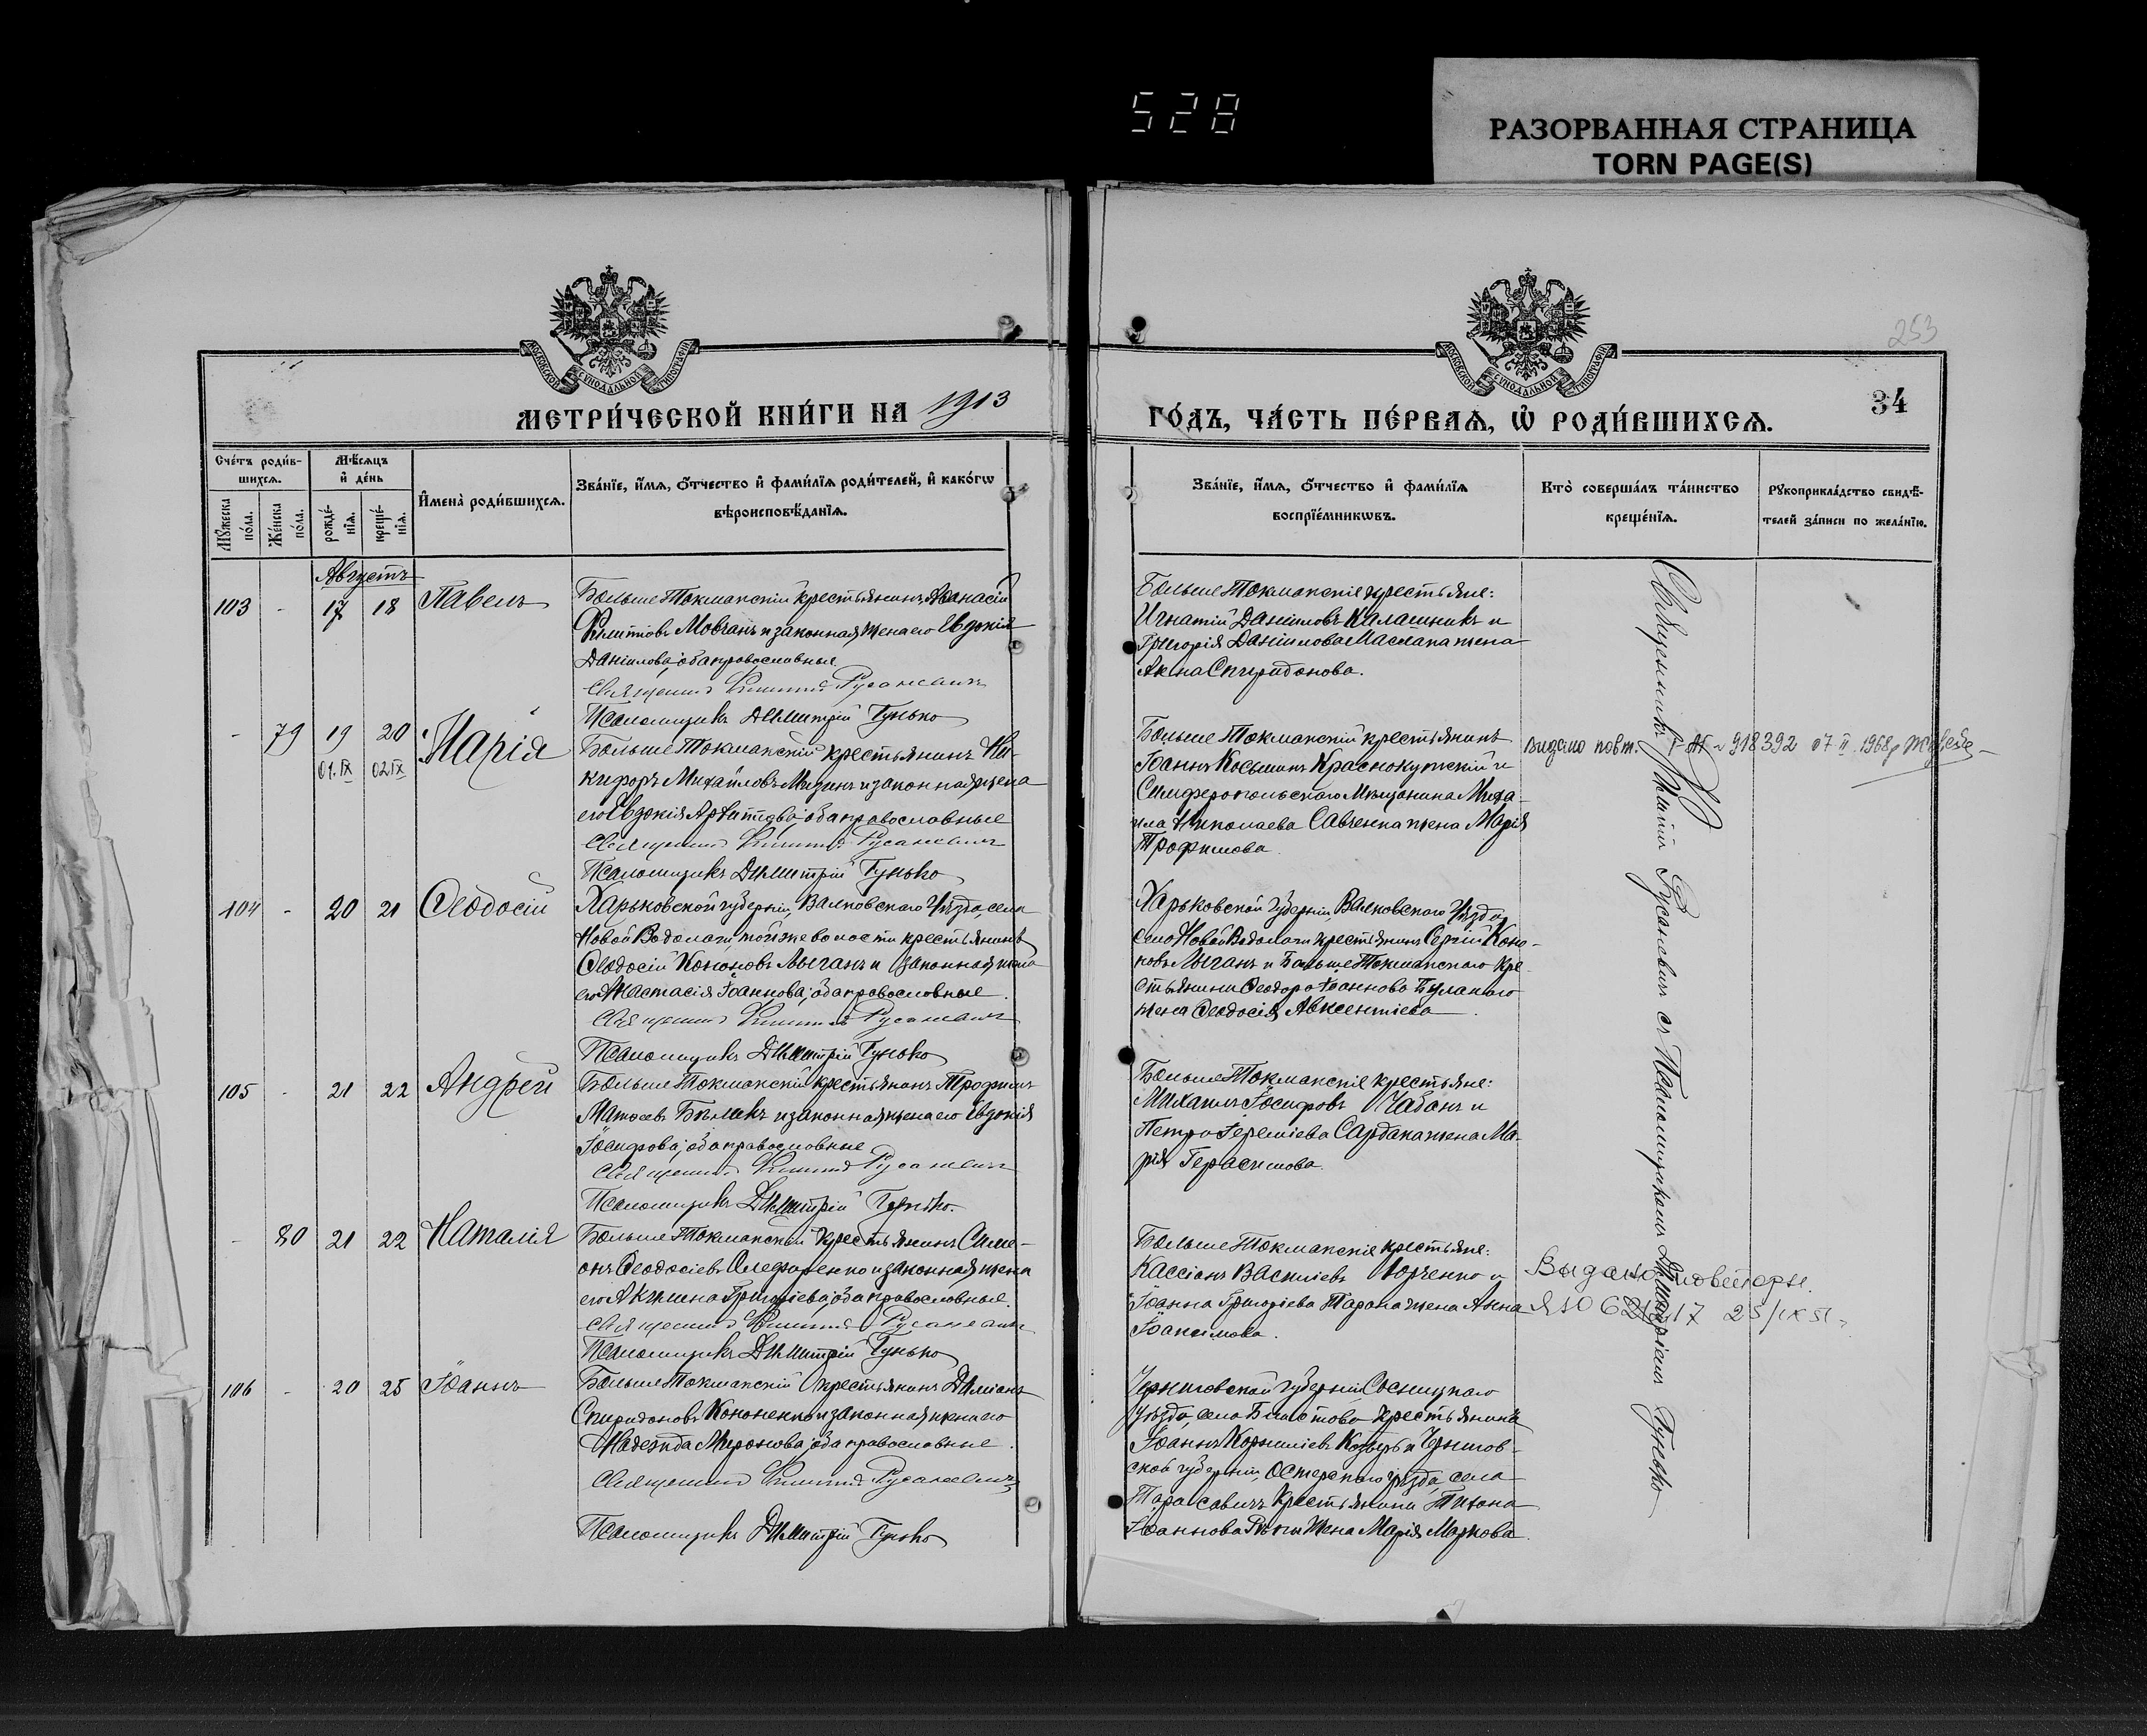 528
РАЗОРВАННАЯ СТРАНИЦА
TORN PAGE(S)
253
МОСКОВСКОЙ СѴНОДАЛЬНОЙ ТИПОГРАФІИ
МОСКОВСКОЙ СѴНОДАЛЬНОЙ ТИПОГРАФІИ
МЕТРИ́ЧЕСКОЙ КНИ́ГИ НА 1913
ГО́ДЪ, ЧА́СТЬ ПЕ́РВАЯ, Ѡ҆ РОДИ́ВШИХСЯ.
34
Сче́тъ роди́в-
шихся.
Мѣ́сяцъ
и҆ де́нь
Мꙋ́жеска по́ла.
Же́нска по́ла.
рожде́-
нїѧ.
креще́-
нїѧ.
И҆мена̀ роди́вшихся.
Зва́нїе, и҆́мѧ, ѻ҆́тчество и҆ фами́лїѧ роди́телей, и҆ како́гѡ
вѣроисповѣ́данїѧ.
Зва́нїе, и҆́мѧ, ѻ҆́тчество и҆ фами́лїѧ
воспрїе́мникѡвъ.
Кто̀ соверша́лъ та́инство
креще́нїѧ.
Рꙋкоприкла́дство свидѣ́-
телей за́писи по жела́нїю.
Августъ
103 - 17 18 Павелъ
Больше Токмакскій крестьянинъ Аѳанасій
Филиповъ Мовчанъ и законная жена его Евдокія
Даніилова, оба православные
Священникъ Русаневичъ
Псаломщикъ Димитрій Гунько
Больше Токмакскіе крестьяне:
Игнатій Даніиловъ Калашникъ и
Григорія Даніилова Маслака жена
Анна Спиридонова.
- 79 19 20 Марія
01.IX 02IX
Больше Токмакскій крестьянинъ Ни-
кифоръ Михайловъ Мизинъ и законная жена
его Евдокія православные
Священникъ Русаневичъ
Псаломщикъ Димитрій Гунько
Больше Токмакскій крестьянинъ
Іоаннъ Косьминъ Краснокутскій и
Симферопольскаго мѣщанина Миха-
ила Николаева Савченка жена Марія
Трофимова.
видано повт. I-АП № 918392 07 II. 1968р
104 - 20 21 Ѳеодосій
Харьковской губерніи, Валковскаго уѣзда, села
Новой Водолаги, той же волости крестьянинъ
Ѳеодосій Кононовъ Лыганъ и законная жена
его Анастасія Іоаннова, оба православные.
Священникъ Русаневичъ
Псаломщикъ Димитрій Гунько
Харьковской губерніи, Валковскаго уѣзда,
село Новой Водолаги крестьянинъ Сергій Коно-
новъ Лыганъ и Больше Токмакскаго кре-
стьянина Ѳеодора Іоаннова Булаваго
жена Ѳеодосія Авксентіева.
105 - 21 22 Андрей
Больше Токмакскій крестьянинъ Трофимъ
Матѳеевъ и законная жена его Евдокія
Іосифова, оба православные
Священникъ Русаневичъ
Псаломщикъ Димитрій Гунько.
Больше Токмакскіе крестьяне:
Михаилъ Іосифовъ Чабанъ и
Петра Іереміева Сардака жена Ма-
рія Герасимова.
- 80 21 22 Наталія
Больше Токмакскій крестьянинъ Симе-
онъ Ѳеодосіевъ Олефиренко и законная жена
его Акилина Григоріева, оба православные.
Священникъ Русаневичъ
Псаломщикъ Димитрій Гунько
Больше Токмакскіе крестьяне:
Кассіанъ Василіевъ Юрченко и
Іоанна Григоріева Тарана жена Анна
Іоакимова.
Выдано повторн.
106 - 20 25 Іоаннъ
Больше Токмакскій крестьянинъ Даміанъ
Спиридоновъ Кононенко и законная жена его
Надежда Миронова, оба православные.
Священникъ Русаневичъ
Псаломщикъ Димитрій Гунько
Черниговской губерніи Сосницкаго
уѣзда, села крестьянинъ
Іоаннъ Корниліевъ Козырь и Чернигов-
ской губерніи, Остерскаго уѣзда, села
Тарасовичъ крестьянина Тихона
Іоаннова жена Марія Маркова.
Священникъ Русаневичъ съ Псаломщикомъ Димитріемъ Гунько